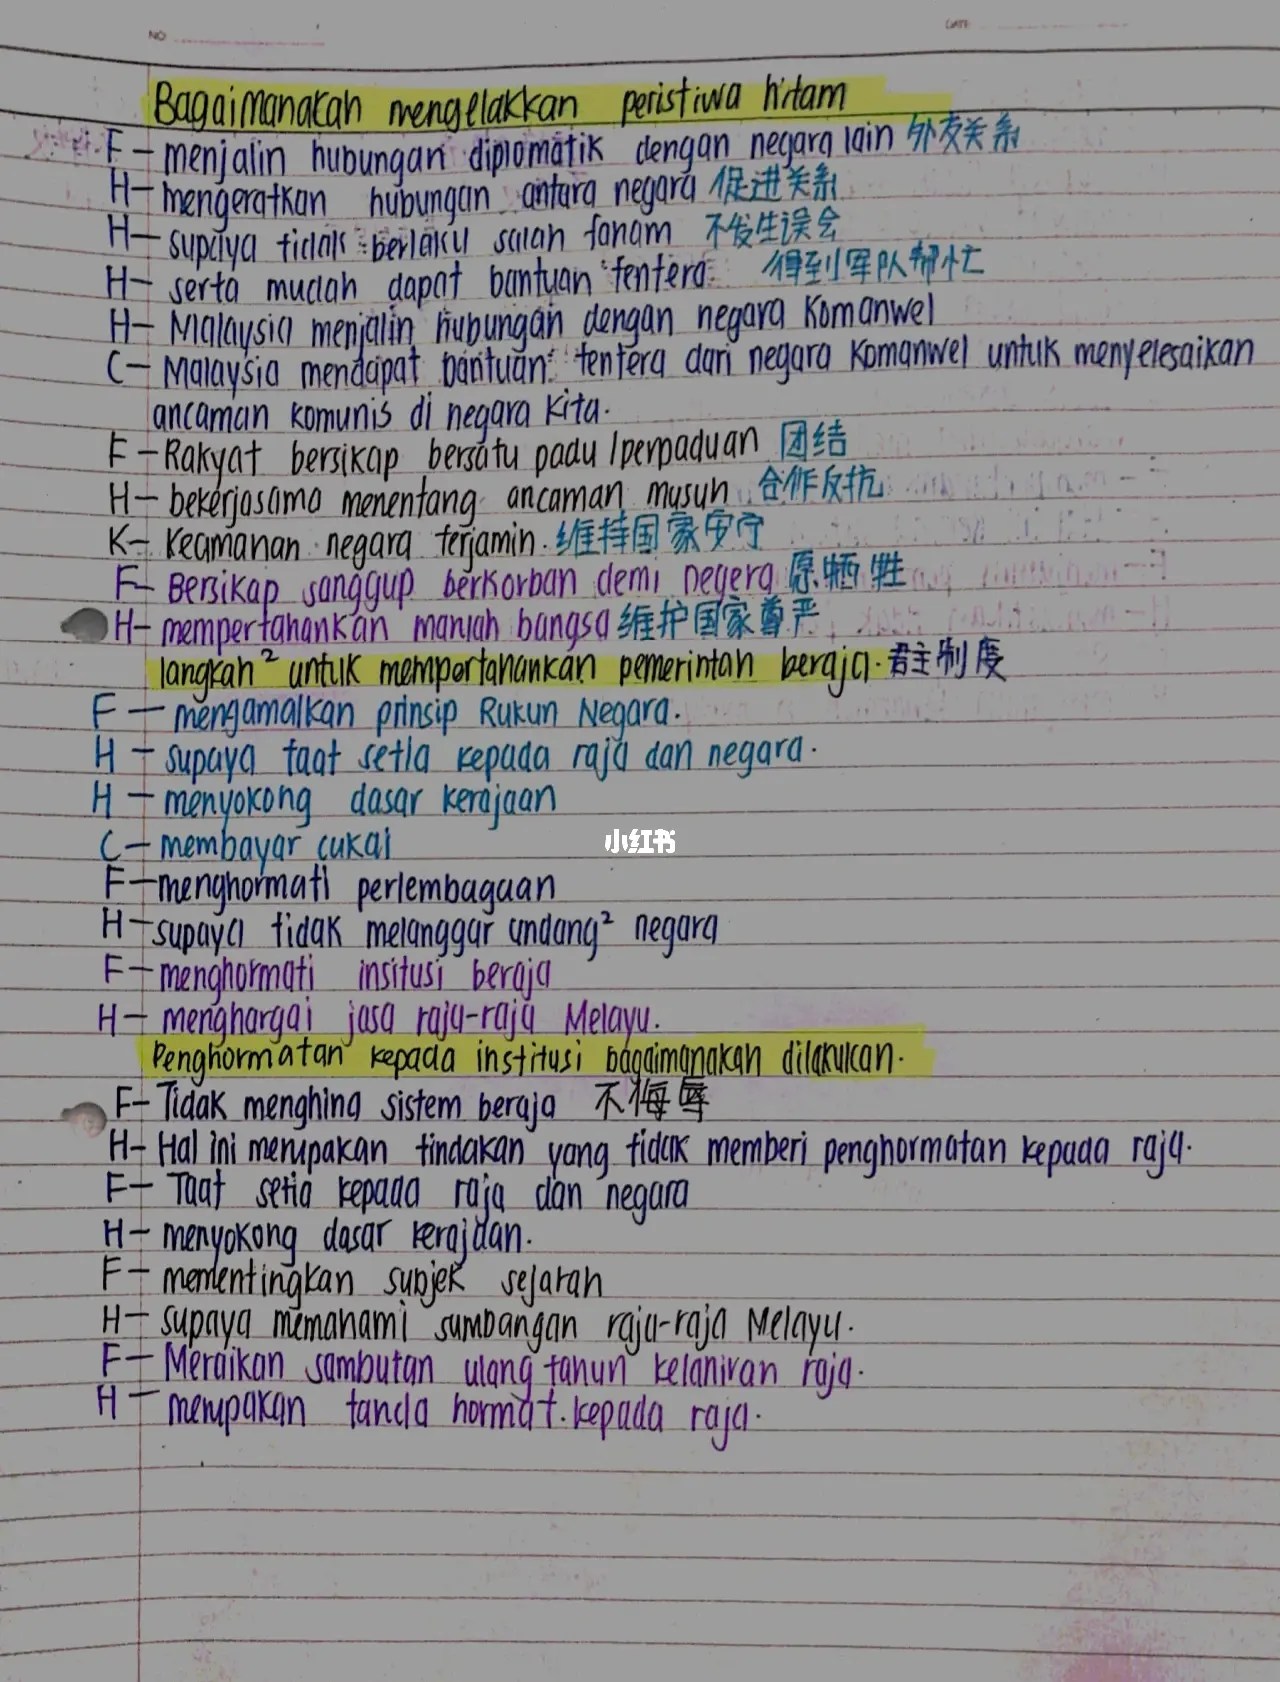 NO
DATE
Bagaimanakah mengelakkan peristiwa hitam
F – menjalin hubungan diplomatik dengan negara lain 外交关系
H – mengeratkan hubungan antara negara 促进关系
H – supaya tidak berlaku salah fanam 不发生误会
H – serta mudah dapat bantuan tentera 得到军队帮忙
H – Malaysia menjalin hubungan dengan negara Komanwel
C – Malaysia mendapat bantuan tentera dari negara Komanwel untuk menyelesaikan
ancaman komunis di negara kita.
F – Rakyat bersikap bersatu padu / perpaduan 团结
H – bekerjasama menentang ancaman musuh 合作反抗
K – Keamanan negara terjamin. 维持国家安宁
F – Bersikap sanggup berkorban demi negera 愿牺牲
H – mempertahankan maruah bangsa 维护国家尊严
langkah² untuk mempertahankan pemerintah beraja. 君主制度
F – mengamalkan prinsip Rukun Negara.
H – supaya taat setia kepada raja dan negara.
H – menyokong dasar kerajaan
C – membayar cukai
小红书
F – menghormati perlembagaan
H – supaya tidak melanggar undang² negara
F – menghormati insitusi beraja
H – menghargai jasa raja-raja Melayu.
Penghormatan kepada institusi bagaimanakan dilakukan.
F – Tidak menghina sistem beraja 不侮辱
H – Hal ini merupakan tindakan yang tidak memberi penghormatan kepada raja.
F – Taat setia kepada raja dan negara
H – menyokong dasar kerajaan.
F – mementingkan subjek sejarah
H – supaya memahami sumbangan raja-raja Melayu.
F – Meraikan sambutan ulang tahun kelahiran raja.
H – merupakan tanda hormat. kepada raja.